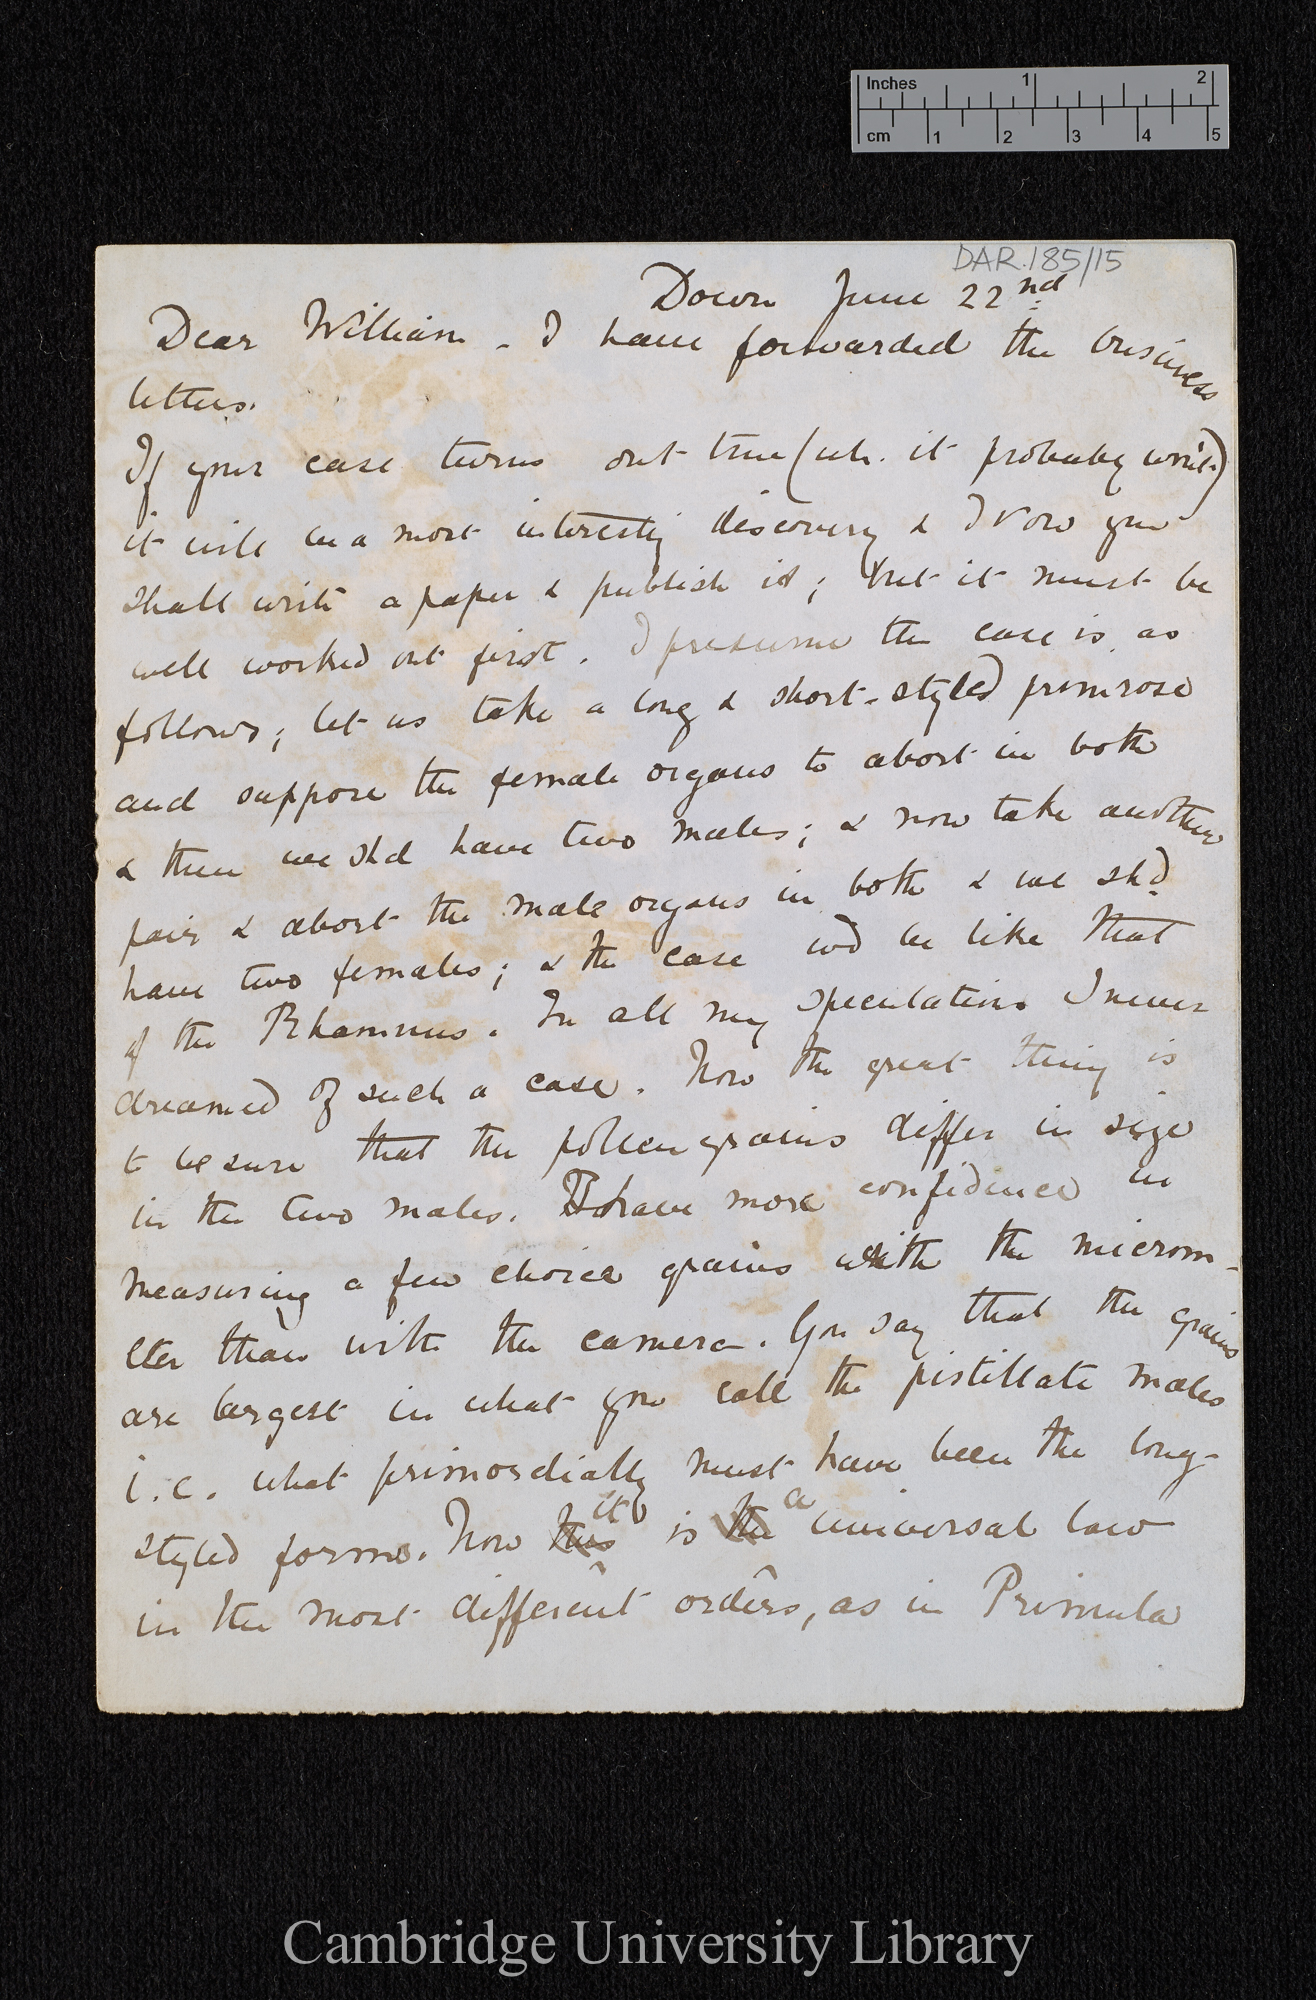 Inches 1 2
cm 1 2 3 4 5
DAR.185/15
Down June 22nd
Dear William. I have forwarded the business
letters.
If your case turns out true (wh. it probably won't)
it will be a most interesting discovery & I vow you
shall write a paper & publish it; but it must be
well worked out first. I presume the case is as
follows; let us take a long & short-styled primrose
and suppose the female organs to abort in both
& then we shd have two males; & now take another
pair & abort the male organs in both & we shd
have two females; & the case wd be like that
of the Rhamnus. In all my speculations I never
dreamed of such a case. Now the great thing is
to be sure that the pollen grains differ in size
in the two males. I have more confidence in
measuring a few choice grains with the microm-
eter than with the camera. You say that the grains
are largest in what you call the pistillate males
i.e. what primordially must have been the long-
styled form. Now this it is the a universal law
in the most different orders, as in Primula
Cambridge University Library